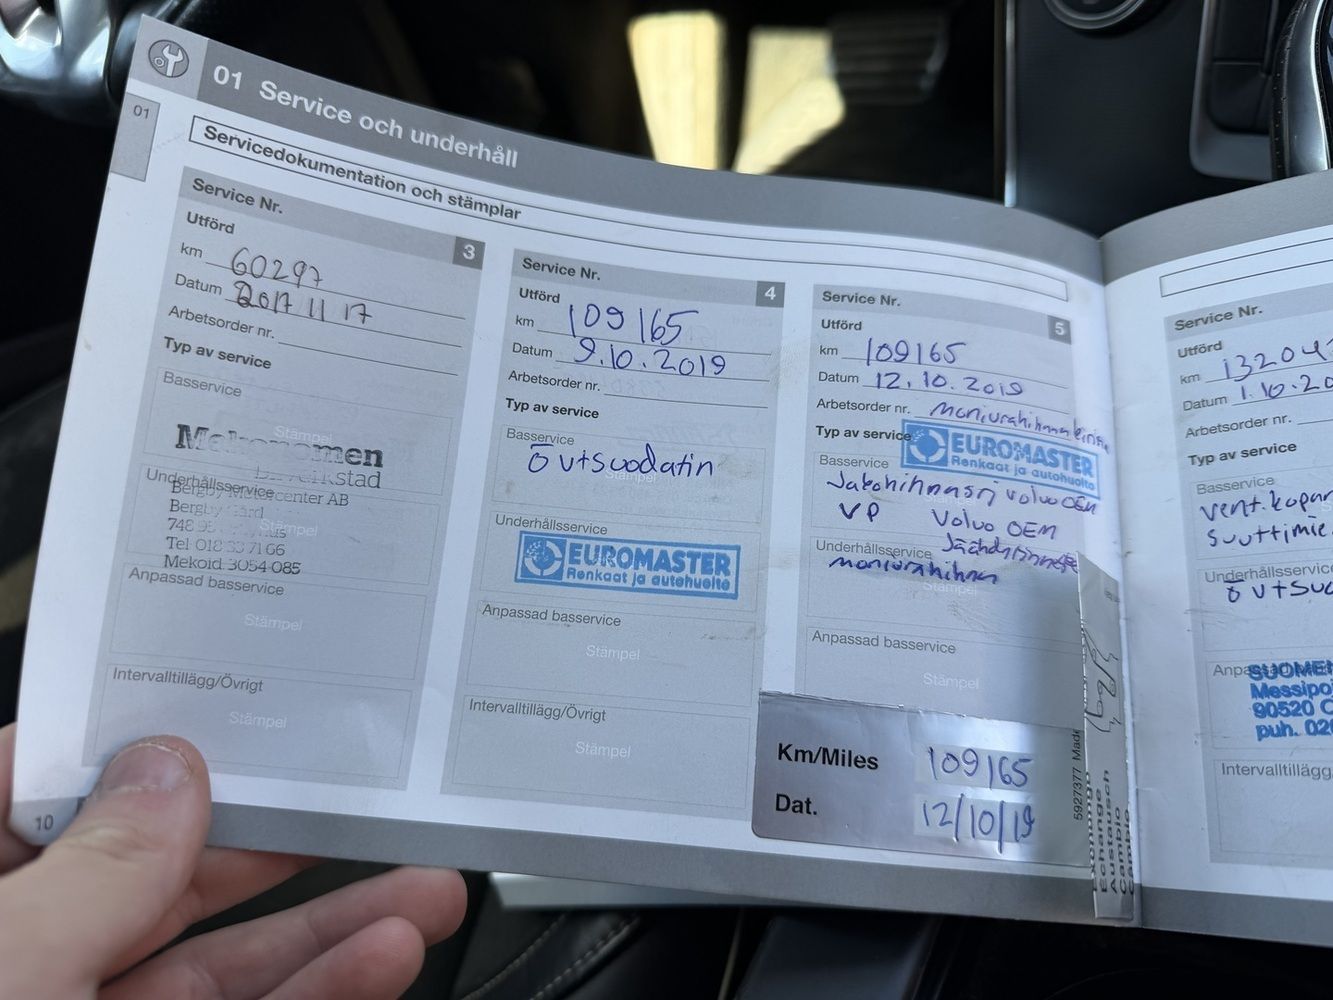 01 Service och underhåll
01
Servicedokumentation och stämplar
Service Nr. 3
Utförd
km 60297
Datum 2017 11 17
Arbetsorder nr.
Typ av service
Basservice
Stämpel
Mekonomen
Bilverkstad
Underhållsservice
Bergby Motorcenter AB
Bergby Gård
Stämpel
748
Mekoid 3054 085
Anpassad basservice
Stämpel
Intervalltillägg/Övrigt
Stämpel
10
Service Nr. 4
Utförd
km 109165
Datum 9.10.2019
Arbetsorder nr.
Typ av service
Basservice
ö v+suodatin
Stämpel
Underhållsservice
EUROMASTER
Renkaat ja autohuolto
Anpassad basservice
Stämpel
Intervalltillägg/Övrigt
Stämpel
Service Nr. 5
Utförd
km 109165
Datum 12.10.2019
Arbetsorder nr. moniurahihna
Typ av service
EUROMASTER
Renkaat ja autohuolto
Basservice
Jakohihnasrj volvo OEM
VP Volvo OEM
Underhållsservice
moniurahihna
Stämpel
Anpassad basservice
Stämpel
Km/Miles 109165
Dat. 12/10/19
5927377 Made
Echange
Austausch
Cambio
Service Nr.
Utförd
km 13204
Datum 1.10.20
Arbetsorder nr.
Typ av service
Basservice
vent.kopan
suuttimie
Underhållsservice
ö v+suo
Anpa
SUOME
Messipo
90520 O
puh. 02
Intervalltillägg